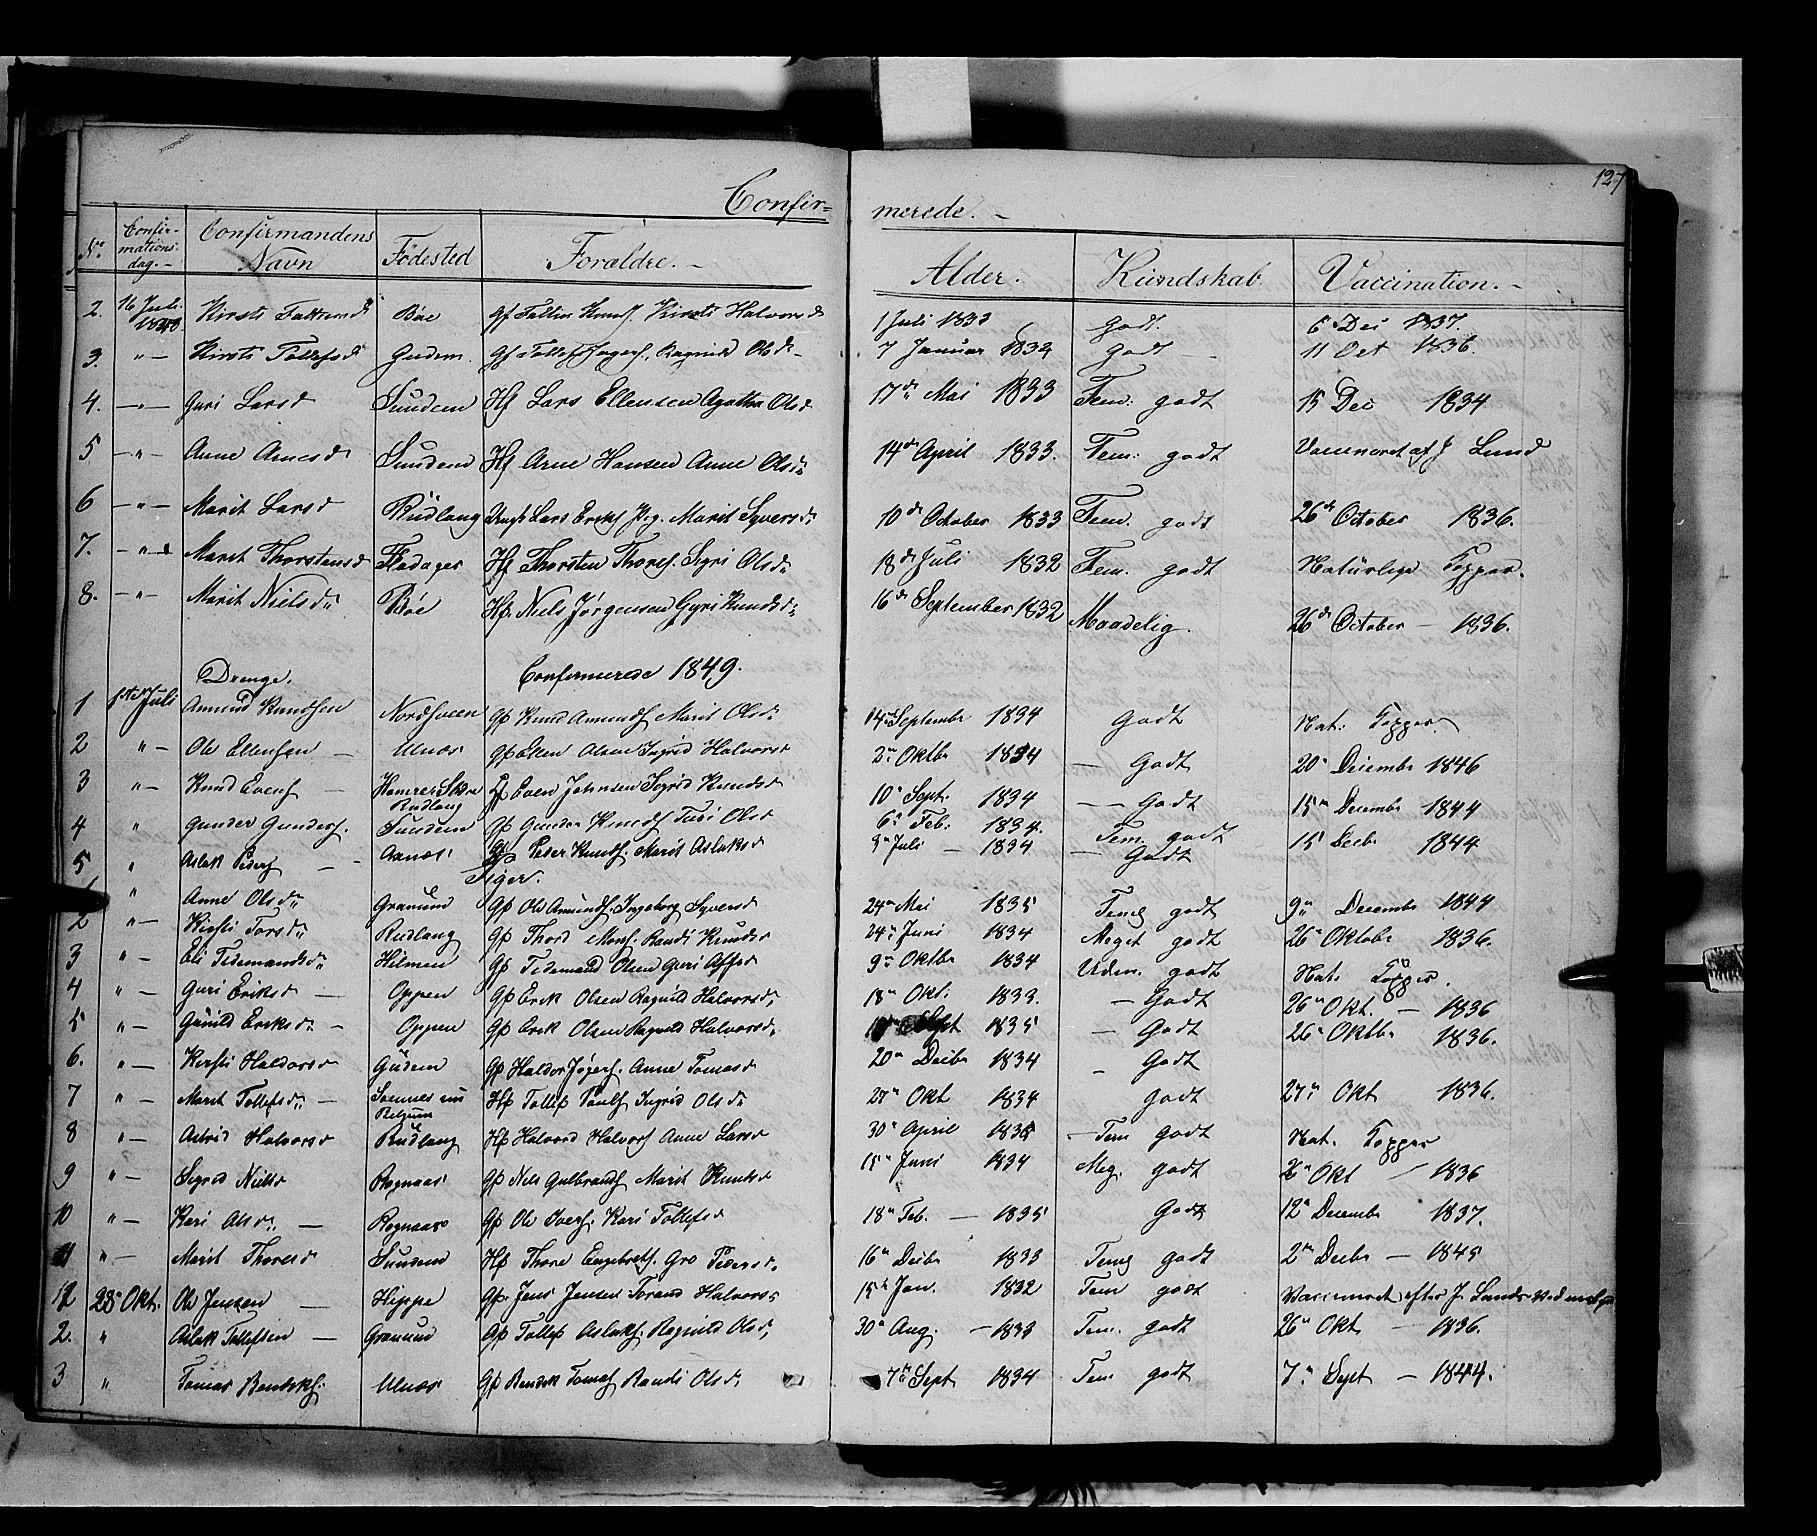 127
Confirmerede.
No. Confirmationsdag. Confirmandens Navn Fødested Forældre. Alder. Kundskab Vaccination.
2. 16 Juli 1848 Kirsti Bøe Gf Knuds. Kirsti Halvorsd 1 Juli 1833 Godt. 6 Dec 1837.
3. " Kirsti Tollefsd Gudem Gf Tollef Ragnild Olsd 7 Januar 1832 Godt 11 Oct 1836.
4. " Guri Larsd Sundem Hf Lars Ellensen Agatha Olsd 17de Mai 1833 Tem: godt 15 Dec 1834
5 " Anne Arnesd Sundem Hf Arne Hansen Anne Olsd 14de April 1833. Tem: godt Vaccineret af J Lund
6 " Marit Larsd Rudlang Ungk Lars Eriks Pig. Marit Syversd. 10de October 1833 Tem. godt 26de October 1836.
7. " Marit Thorstensd Fladager Hf Thorsten Thores. Sigri Olsd. 18de Juli 1832 Tem. godt Naturlige Kopper.
8. " Marit Nielsd Bøe Hf. Niels Jørgensen Gyri Knudsd. 16de September 1832 Maadelig. 26de October 1836.
Drenge. Confirmerede 1849.
1 1ste Juli Amund Knudsen Nordsveen Gf Knud Amunds Marit Olsd. 14 September 1834 Godt Nat: Kopper
2 " Ole Ellensen Ulnæs Gf Ellen Olsen Ingrid Halvorsd 3 Oktbr 1834 Godt 20 Decembr 1846
3 " Knud Evens Rudlang Even Johnsen Sigrid Knudsd 10 Sept. 1834 Godt 15 Decembr 1844
4 " Gunder Gunders. Sundem Gf Gunder Knuds Turi Olsd 6 Feb. 1834. Tem godt 15 Decbr 1844
5 " Aslak Peders Aanæs Gf Peder Knuds. Marit Aslaksd Juli 1834 Godt
Piger.
1 " Anne Olsd Granum Gf Ole Amunds. Ingeborg Syversd 24 Mai 1835 Temg godt 9 Decembr 1844
2 " Kirsti Torsd Rudlang Gf Thord Randi Knudsd 24 Juni 1834 Meget godt 26 Oktobr 1836.
3 " Eli Tidemandsd Hilmen Gf Tidemand Olsen Guri 9 Oktbr 1834 Udm. godt Nat. Kopper.
4 " Guri Eriksd Oppen Gf Erik Olsen Ragnild Halvorsd. 18 Okt. 1833. Godt 26 Okt. 1836
5 " Gunild Eriksd. Oppen Gf Erik Olsen Ragnild Halvorsd. Sept 1835 Godt 26 Oktbr 1836.
6. " Kirsti Haldorsd Gudem Gf Haldor Anne Tomasd 20 Decbr 1834 Godt
7 " Marit Tollefsd. Hf Tollef Ingrid Olsd. 27 Okt 1834 godt 27 Okt 1836.
8 " Astrid Halvorsd Rudlang Hf Halvord Halvors Anne Larsd 30 April 1835 Tem godt Nat. Kopper
9 " Sigrid Nielsd Rognaas Gf Niels Gulbrands Marit Knudsd 15 Juni 1834 Meg. godt 26 Okt 1836
10 " Kari Olsd. Rognaas Gf Ole Ivers. Kari Tollefsd 18 Feb. 1835 Godt 12 Decembr 1837.
11 " Marit Thoresd Sundem Hf Thore Engebrets. Gro Pedersd. 16 Decbr 1833 Temg godt 2 Decbr 1845
1 28 Okt. Ole Jensen Hippe Gf. Jens Jensen Torand Halvorsd 15 Jan. 1832 Tem godt Vaccineret efter J. Lunds
2. " Aslak Tollefsen Granum Gf Tollef Aslaks. Ragnild Olsd. 30 Aug. 1833 Tem. godt 26 Okt 1836.
3 " Tomas Bendiks. Ulnæs Gf Bendik Tomas Randi Olsd. 7 Sept 1834 Tem godt 7 Sept 1844.